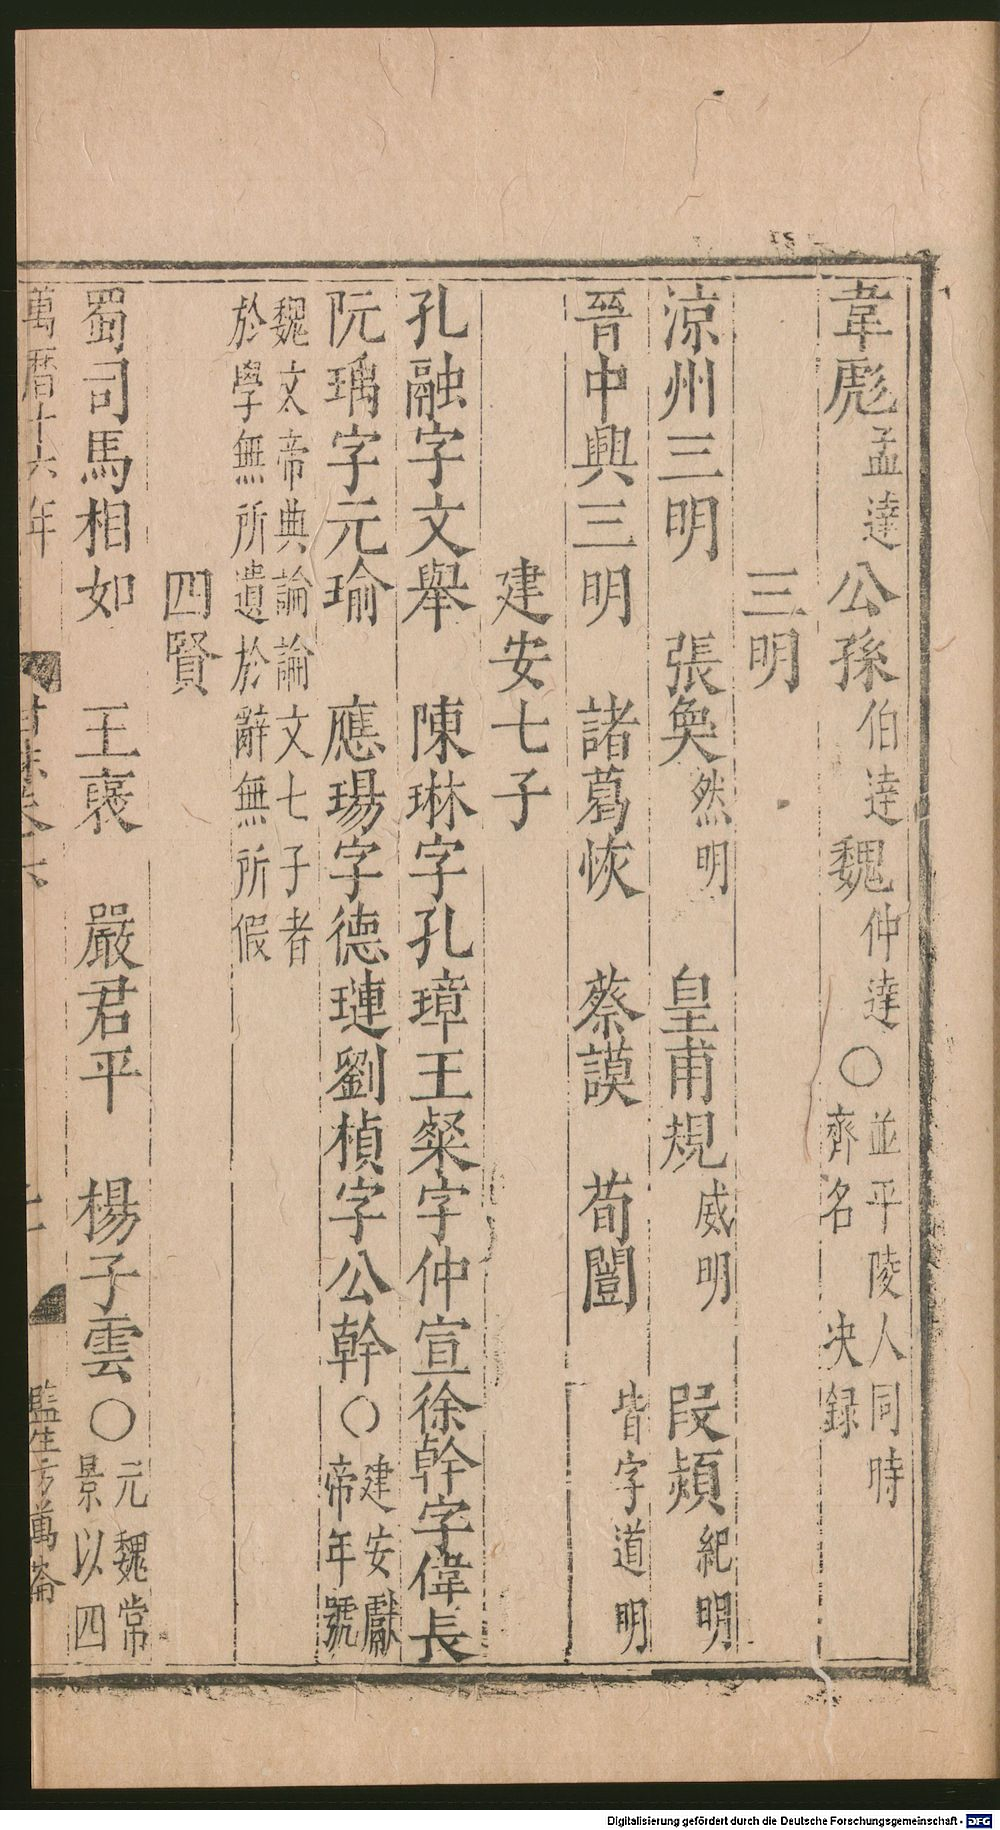 韋彪孟達 公孫伯達魏仲達○並平陵人同時齊名 决録
三明
涼州三明 張奐然明 皇甫規威明 段熲紀明
晉中興三明 諸葛恢 蔡謨 荀闓 皆字道明
建安七子
孔融字文舉 陳琳字孔璋王粲字仲宣徐幹字偉長
阮瑀字元瑜 應瑒字德璉劉楨字公幹○建安獻帝年號
魏文帝典論論文七子者
於學無所遺於辭無所假
四賢
蜀司馬相如 王襃 嚴君平 楊子雲○元魏常景以四
萬曆十六年
監生
Digitalisierung gefördert durch die Deutsche Forschungsgemeinschaft - DFG